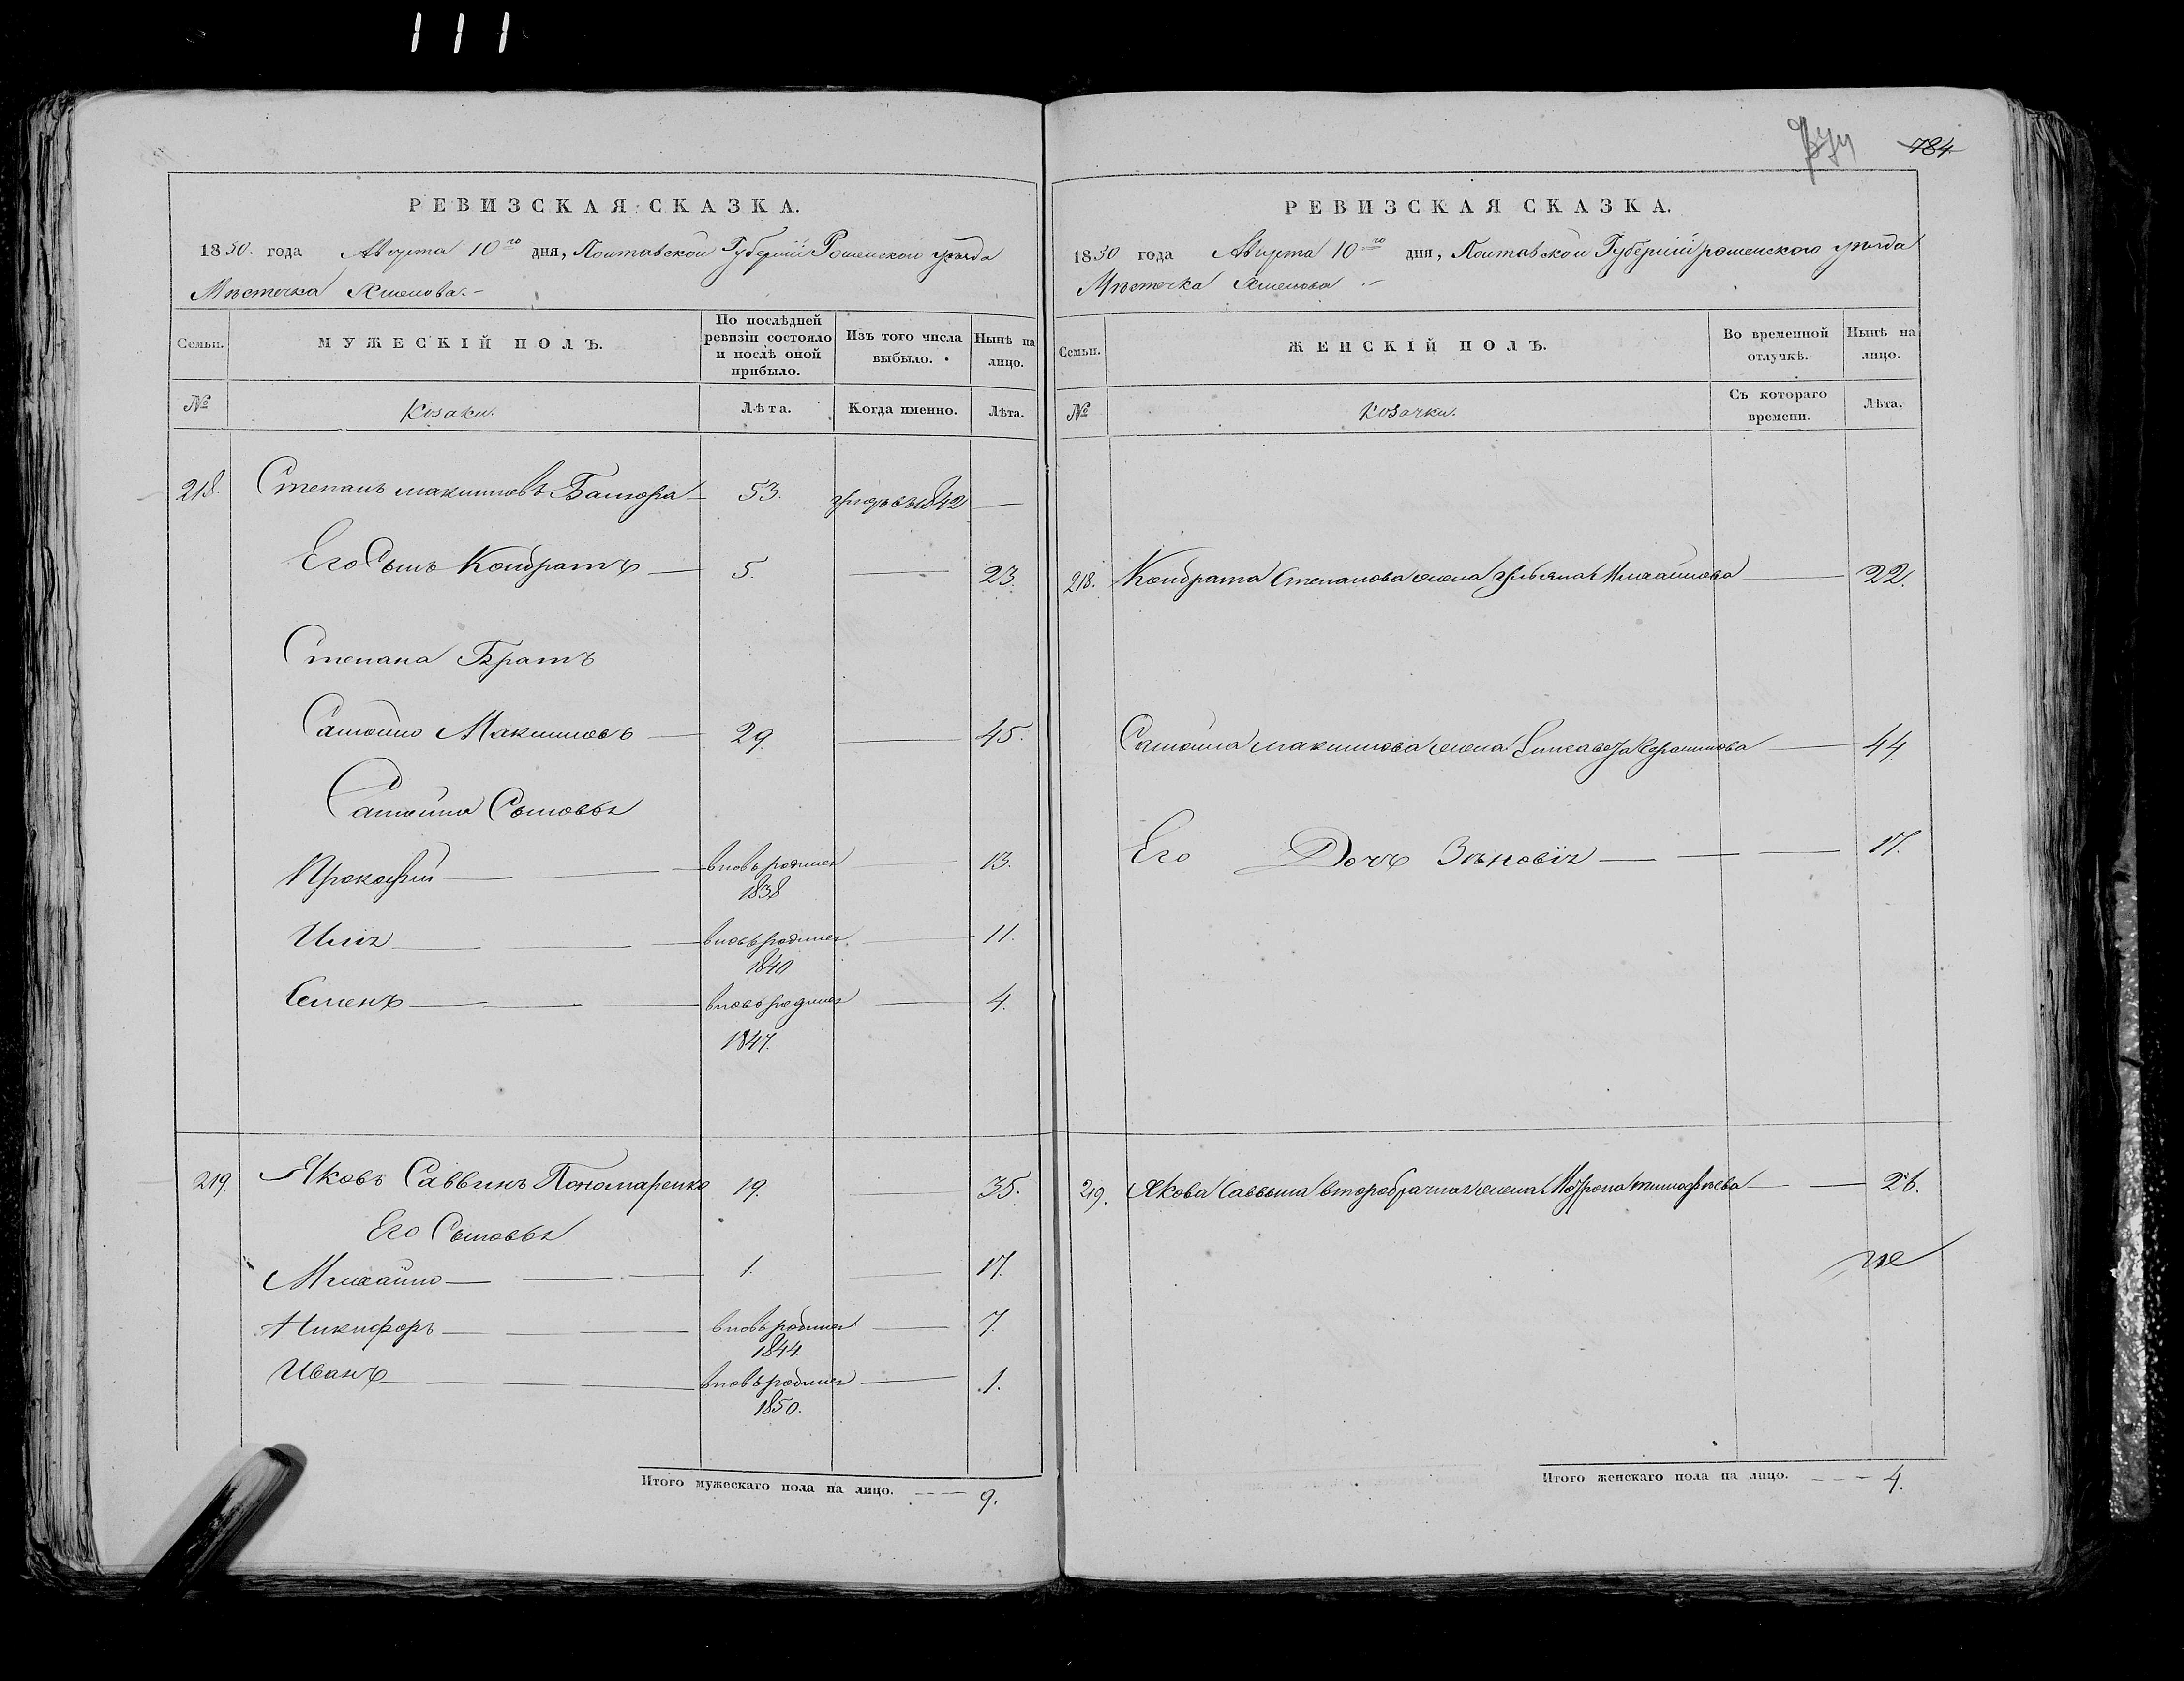 111
784
РЕВИЗСКАЯ СКАЗКА.
1850. года Августа 10го дня, Полтавской Губерніи Роменского уѣзда
Мѣстечка
Семьи.
МУЖЕСКІЙ ПОЛЪ.
По послѣдней ревизіи состояло и послѣ оной прибыло.
Изъ того числа выбыло.
Нынѣ на лицо.
№
Козаки.
Лѣта.
Когда именно.
Лѣта.
218. Степанъ Максимовъ 53. 1842 —
Его Сынъ Кондратъ — 5. — 23.
Степана Братъ
Самойло Максимовъ — 29. — 45.
Самойла Сыновья
Прокофій — вновь рожден — 13.
1838
Илія — вновь рожден — 11.
1840
Семенъ — вновь рожден — 4.
1847.
219. Яковъ Саввинъ Пономаренко 19. — 35.
Его Сыновья
Михайло — 1. — 17.
Никифоръ — вновь рожден — 7.
1844
Иванъ — вновь рожден — 1.
1850.
Итого мужескаго пола на лицо. — 9.
РЕВИЗСКАЯ СКАЗКА.
1850 года Августа 10го дня, Полтавской Губерніи роменского уѣзда
Мѣстечка
Семьи.
ЖЕНСКІЙ ПОЛЪ.
Во временной отлучкѣ.
Нынѣ на лицо.
№
Козачки.
Съ котораго времени.
Лѣта.
218. Кондрата Степанова жена Ульяна Михайлова — 22.
Самойла Максимова жена Елисавета — 44.
Его Дочь Зѣновія — 17.
219. Якова Саввина второбрачная жена Мотрона Тимофѣева — 26.
Итого женскаго пола на лицо. — 4.